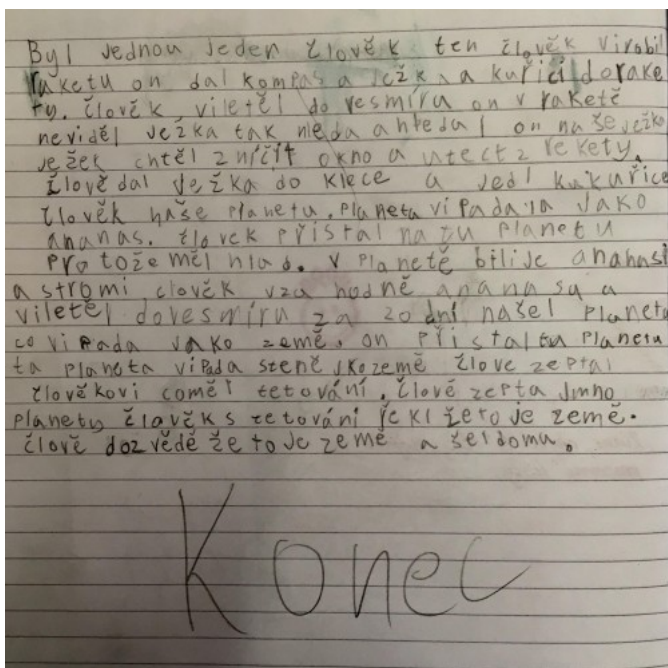 Byl Jednou Jeden člověk ten člověk virobil
raketu on dal kompas a ježk a a kuřicí dorake
ty. člověk viletěl do vesmíru on v raketě
neviděl Ježka tak hleda a hledal on naše ježka
Ježek chtěl zničit okno a utect z rekety.
člově dal Ježka do klece a Jedl kukuřice
člověk naše planetu. planeta vipadala Jako
ananas. človek přistal na tu planetu
protože měl hlad. v planetě bili je ananasi
a stromi člověk vza hodně ananasu a
viletěl dovesmíru za 20 dní našel planetu
co vipada Jako země. on přistal tu planeta
ta planeta vipada steně Jkozemě člove zeptal
člověkovi coměl tetování. člově zepta Jmno
planety člověk s tetování řekl žeto je země.
člově dozvědě že to Je země a šel domu.
Konec